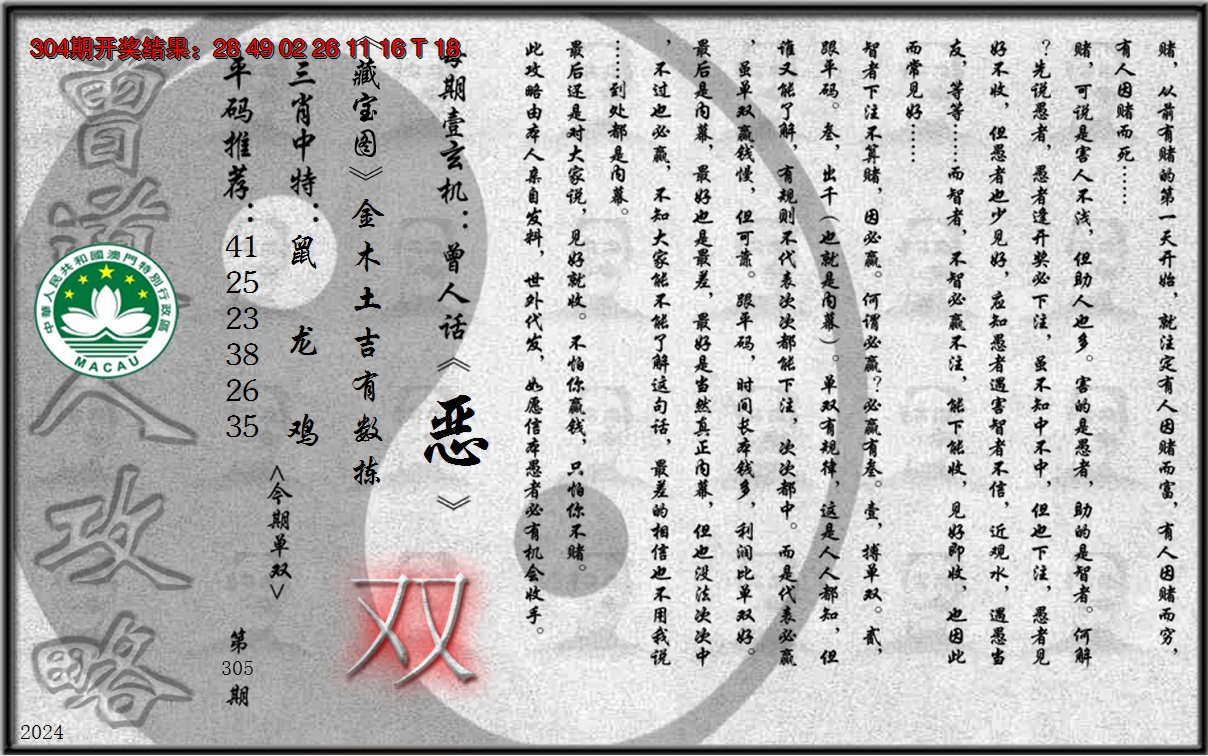 304期开奖结果：28 49 02 26 11 16 T 18
赌，从前有赌的第一天开始，就注定有人因赌而富，有人因赌而穷，
有人因赌而死……
赌，可说是害人不浅，但助人也多。害的是愚者，助的是智者。何解
？先说愚者，愚者逢开奖必下注，虽不知中不中，但也下注，愚者见
好不收，但愚者也少见好，应知愚者遇害智者不信，近观水，遇愚当
友，等等……而智者，不智必赢不注，能下能收，见好即收，也因此
而常见好……
智者下注不算赌，因必赢。何谓必赢？必赢有叁。壹，搏单双。贰，
跟平码。叁，出千（也就是内幕）。单双有规律，这是人人都知，但
谁又能了解，有规则不代表次次都能下注，次次都中。而是代表必赢
，虽单双赢钱慢，但可靠。跟平码，时间长本钱多，利润比单双好。
最后是内幕，最好也是最差，最好是当然真正内幕，但也没法次次中
，不过也必赢，不知大家能不能了解这句话，最差的相信也不用我说
……到处都是内幕。
最后还是对大家说，见好就收。不怕你赢钱，只怕你不赌。
此攻略由本人亲自发料，世外代发，如愿信本愚者必有机会收手。
每期壹玄机：曾人话《恶》
《藏宝图》金木土吉有数拣
双
三肖中特：鼠 龙 鸡
<今期单双>
平码推荐：
41
25
23
38
26
35
第
305
期
曾道人攻略
中華人民共和國澳門特別行政區
MACAU
2024